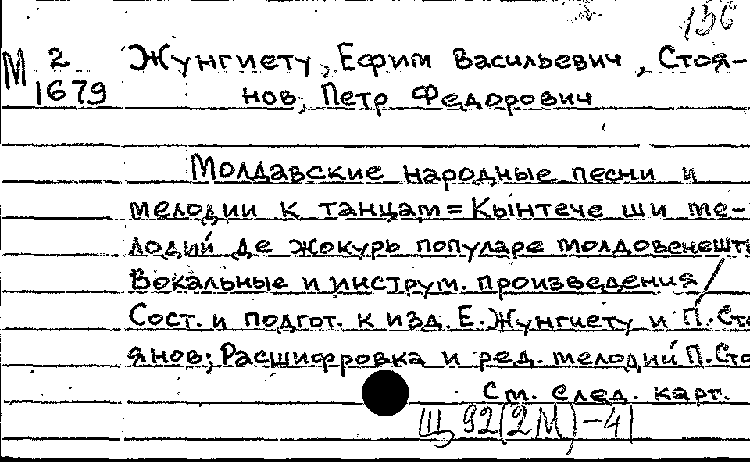 156
М 2 Жунгиету, Ефим Васильевич, Стоя-
1679 нов, Петр Федорович
Молдавские народные песни и
мелодии к танцам = Кынтече ши ме-
лодий де жокурь популаре молдовенешть
Вокальные и инструм. произведения /
Сост. и подгот. к изд. Е. Жунгиету и П. Сто
янов; Расшифровка и ред. мелодий П. Сто
См. след. карт.
Щ 92(2М)-41